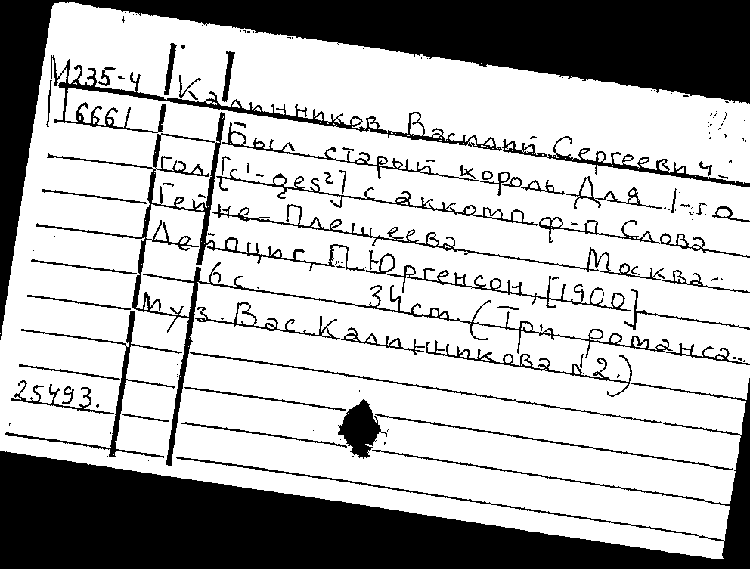 М235-4 Калинников, Василий Сергеевич.-
6661 Был старый король. Для 1-го
гол. [c¹-ges²] с аккомп ф-п Слова
Гейне-Плещеева. Москва-
Лейпциг, П. Юргенсон, [1900]
6 с. 34 cm. (Три романса..
муз. Вас. Калинникова №2.)
25493.